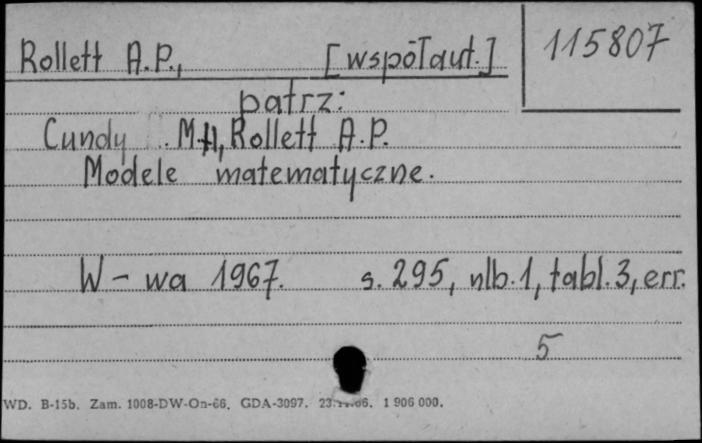 Rollett A.P., [współaut.] 115807
patrz:
Cundy M.H., Rollett A.P.
Modele matematyczne.
W-wa 1967. s. 295, nlb. 1, tabl. 3, err.
5
WD. B-15b. Zam. 1008-DW-On-66. GDA-3097. 1 906 000.